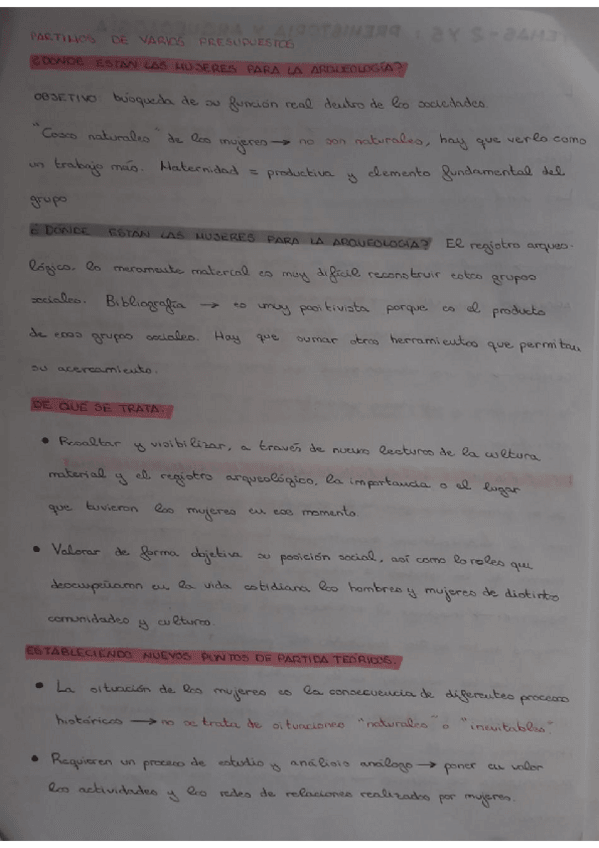 PARTIMOS DE VARIOS PRESUPUESTOS
¿DÓNDE ESTÁN LAS MUJERES PARA LA ARQUEOLOGÍA?
OBJETIVO: búsqueda de su función real dentro de las sociedades.
"Cosas naturales" de las mujeres → no son naturales, hay que verlo como
un trabajo más. Maternidad = productiva y elemento fundamental del
grupo
¿DÓNDE ESTÁN LAS MUJERES PARA LA ARQUEOLOGÍA? El registro arqueo-
lógico, lo meramente material es muy difícil reconstruir estos grupos
sociales. Bibliografía → es muy positivista porque es el producto
de esos grupos sociales. Hay que sumar otras herramientas que permitan
su acercamiento.
DE QUÉ SE TRATA:
• Resaltar y visibilizar, a través de nuevas lecturas de la cultura
material y el registro arqueológico, la importancia o el lugar
que tuvieron las mujeres en ese momento.
• Valorar de forma objetiva su posición social, así como los roles que
desempeñaron en la vida cotidiana los hombres y mujeres de distintas
comunidades y culturas.
ESTABLECIENDO NUEVOS PUNTOS DE PARTIDA TEÓRICOS.
• La situación de las mujeres es la consecuencia de diferentes procesos
históricos → no se trata de situaciones "naturales" o "inevitables"
• Requieren un proceso de estudio y análisis análogo → poner en valor
las actividades y las redes de relaciones realizadas por mujeres.